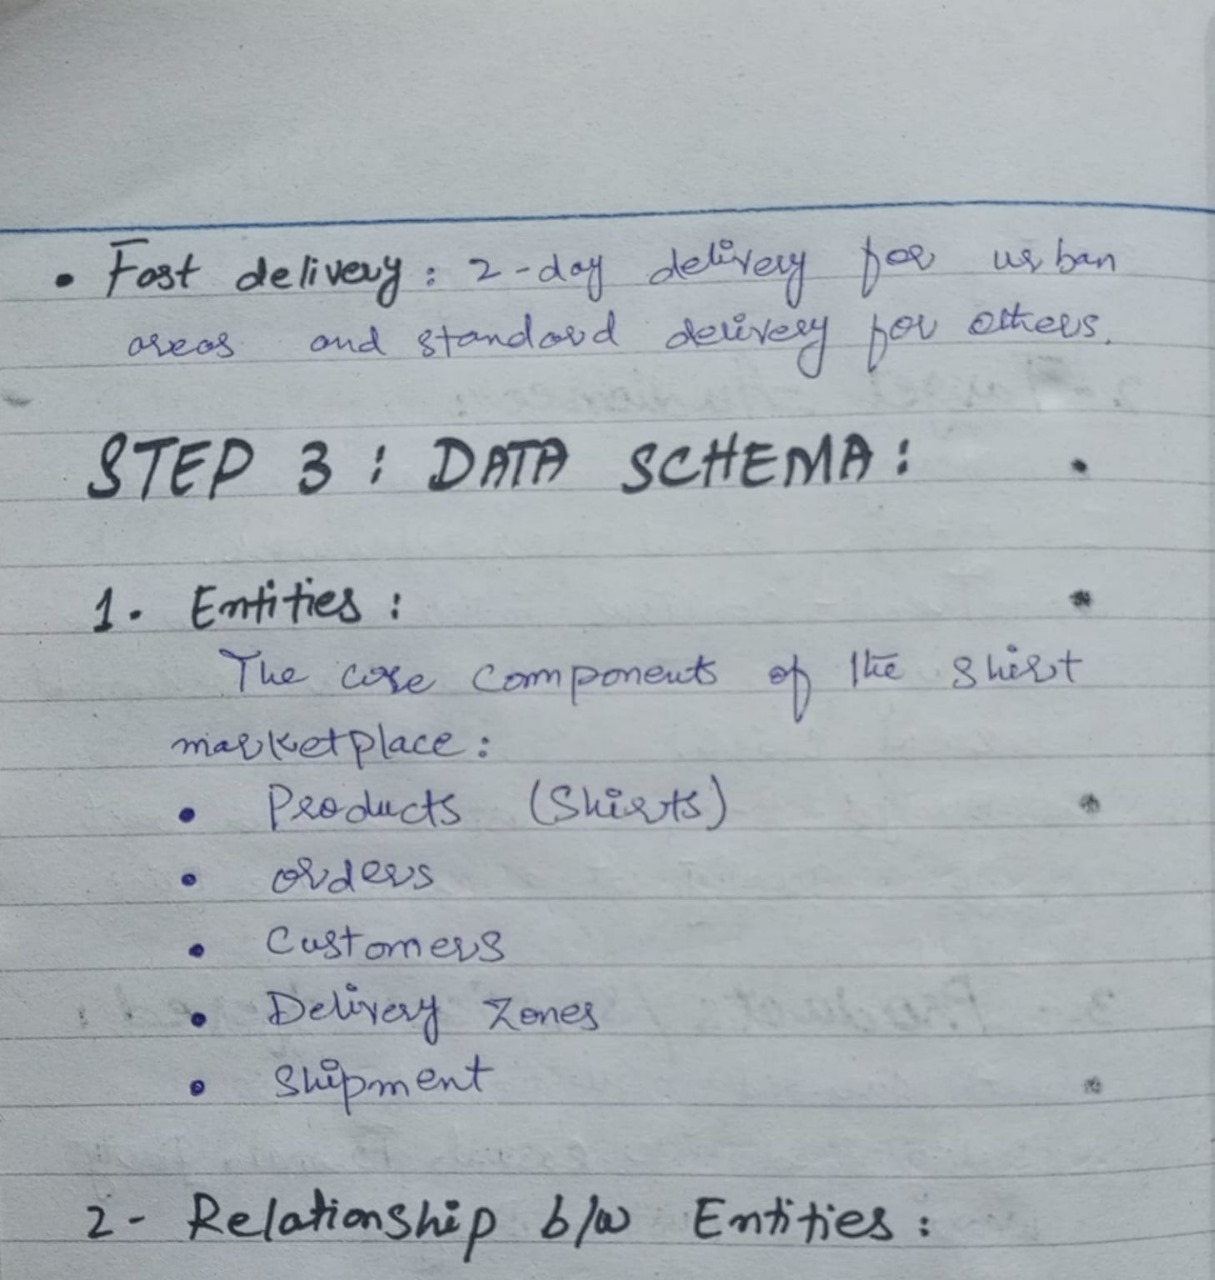 • Fast delivery : 2-day delivery for urban
areas and standard delivery for others.
STEP 3 : DATA SCHEMA :
1. Entities :
The core components of the shirt
marketplace :
• Products (Shirts)
• orders
• Customers
• Delivery Zones
• Shipment
2- Relationship b/w Entities :